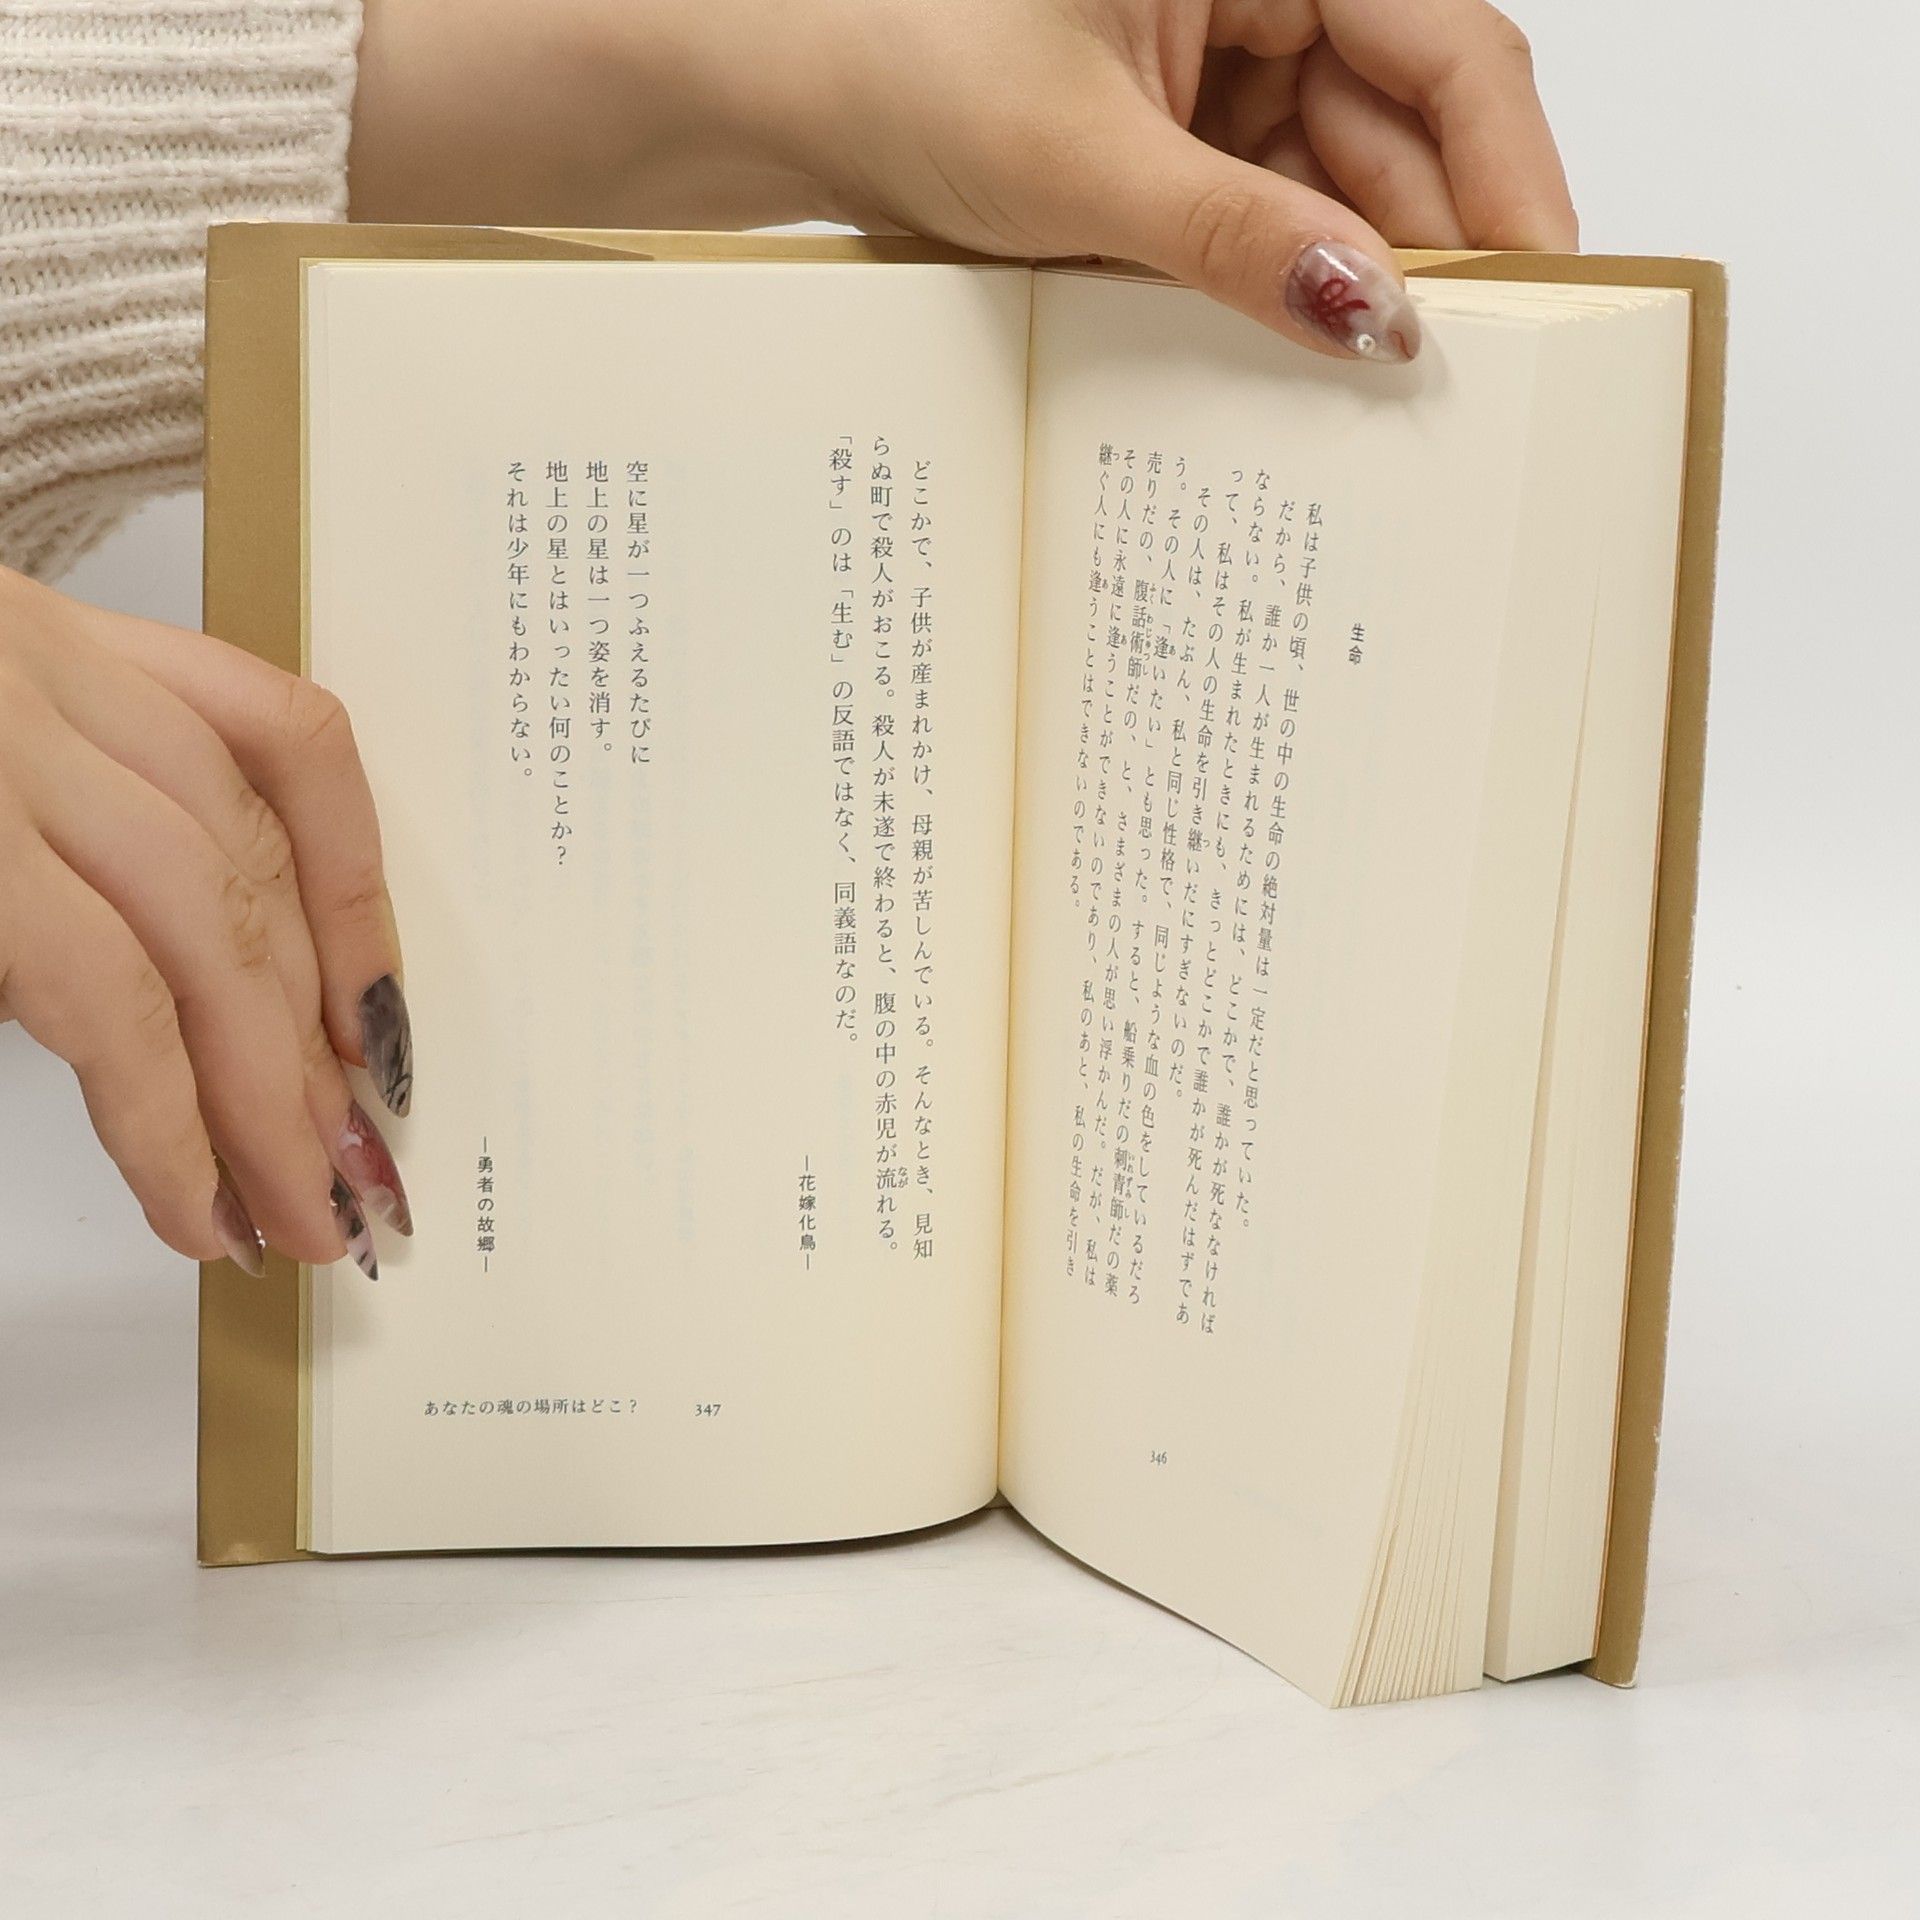 生命
私は子供の頃、世の中の生命の絶対量は一定だと思っていた。
だから、誰か一人が生まれるためには、どこかで、誰かが死ななければ
ならない。私が生まれたときにも、きっとどこかで誰かが死んだはずであ
って、私はその人の生命を引き継いだにすぎないのだ。
その人は、たぶん、私と同じ性格で、同じような血の色をしているだろ
う。その人に「逢いたい」とも思った。すると、船乗りだの刺青師だの薬
売りだの、腹話術師だの、と、さまざまの人が思い浮かんだ。だが、私は
その人に永遠に逢うことができないのであり、私のあと、私の生命を引き
継ぐ人にも逢うことはできないのである。
346
どこかで、子供が産まれかけ、母親が苦しんでいる。そんなとき、見知
らぬ町で殺人がおこる。殺人が未遂で終わると、腹の中の赤児が流れる。
「殺す」のは「生む」の反語ではなく、同義語なのだ。
―花嫁化鳥―
空に星が一つふえるたびに
地上の星は一つ姿を消す。
地上の星とはいったい何のことか?
それは少年にもわからない。
―勇者の故郷―
あなたの魂の場所はどこ? 347